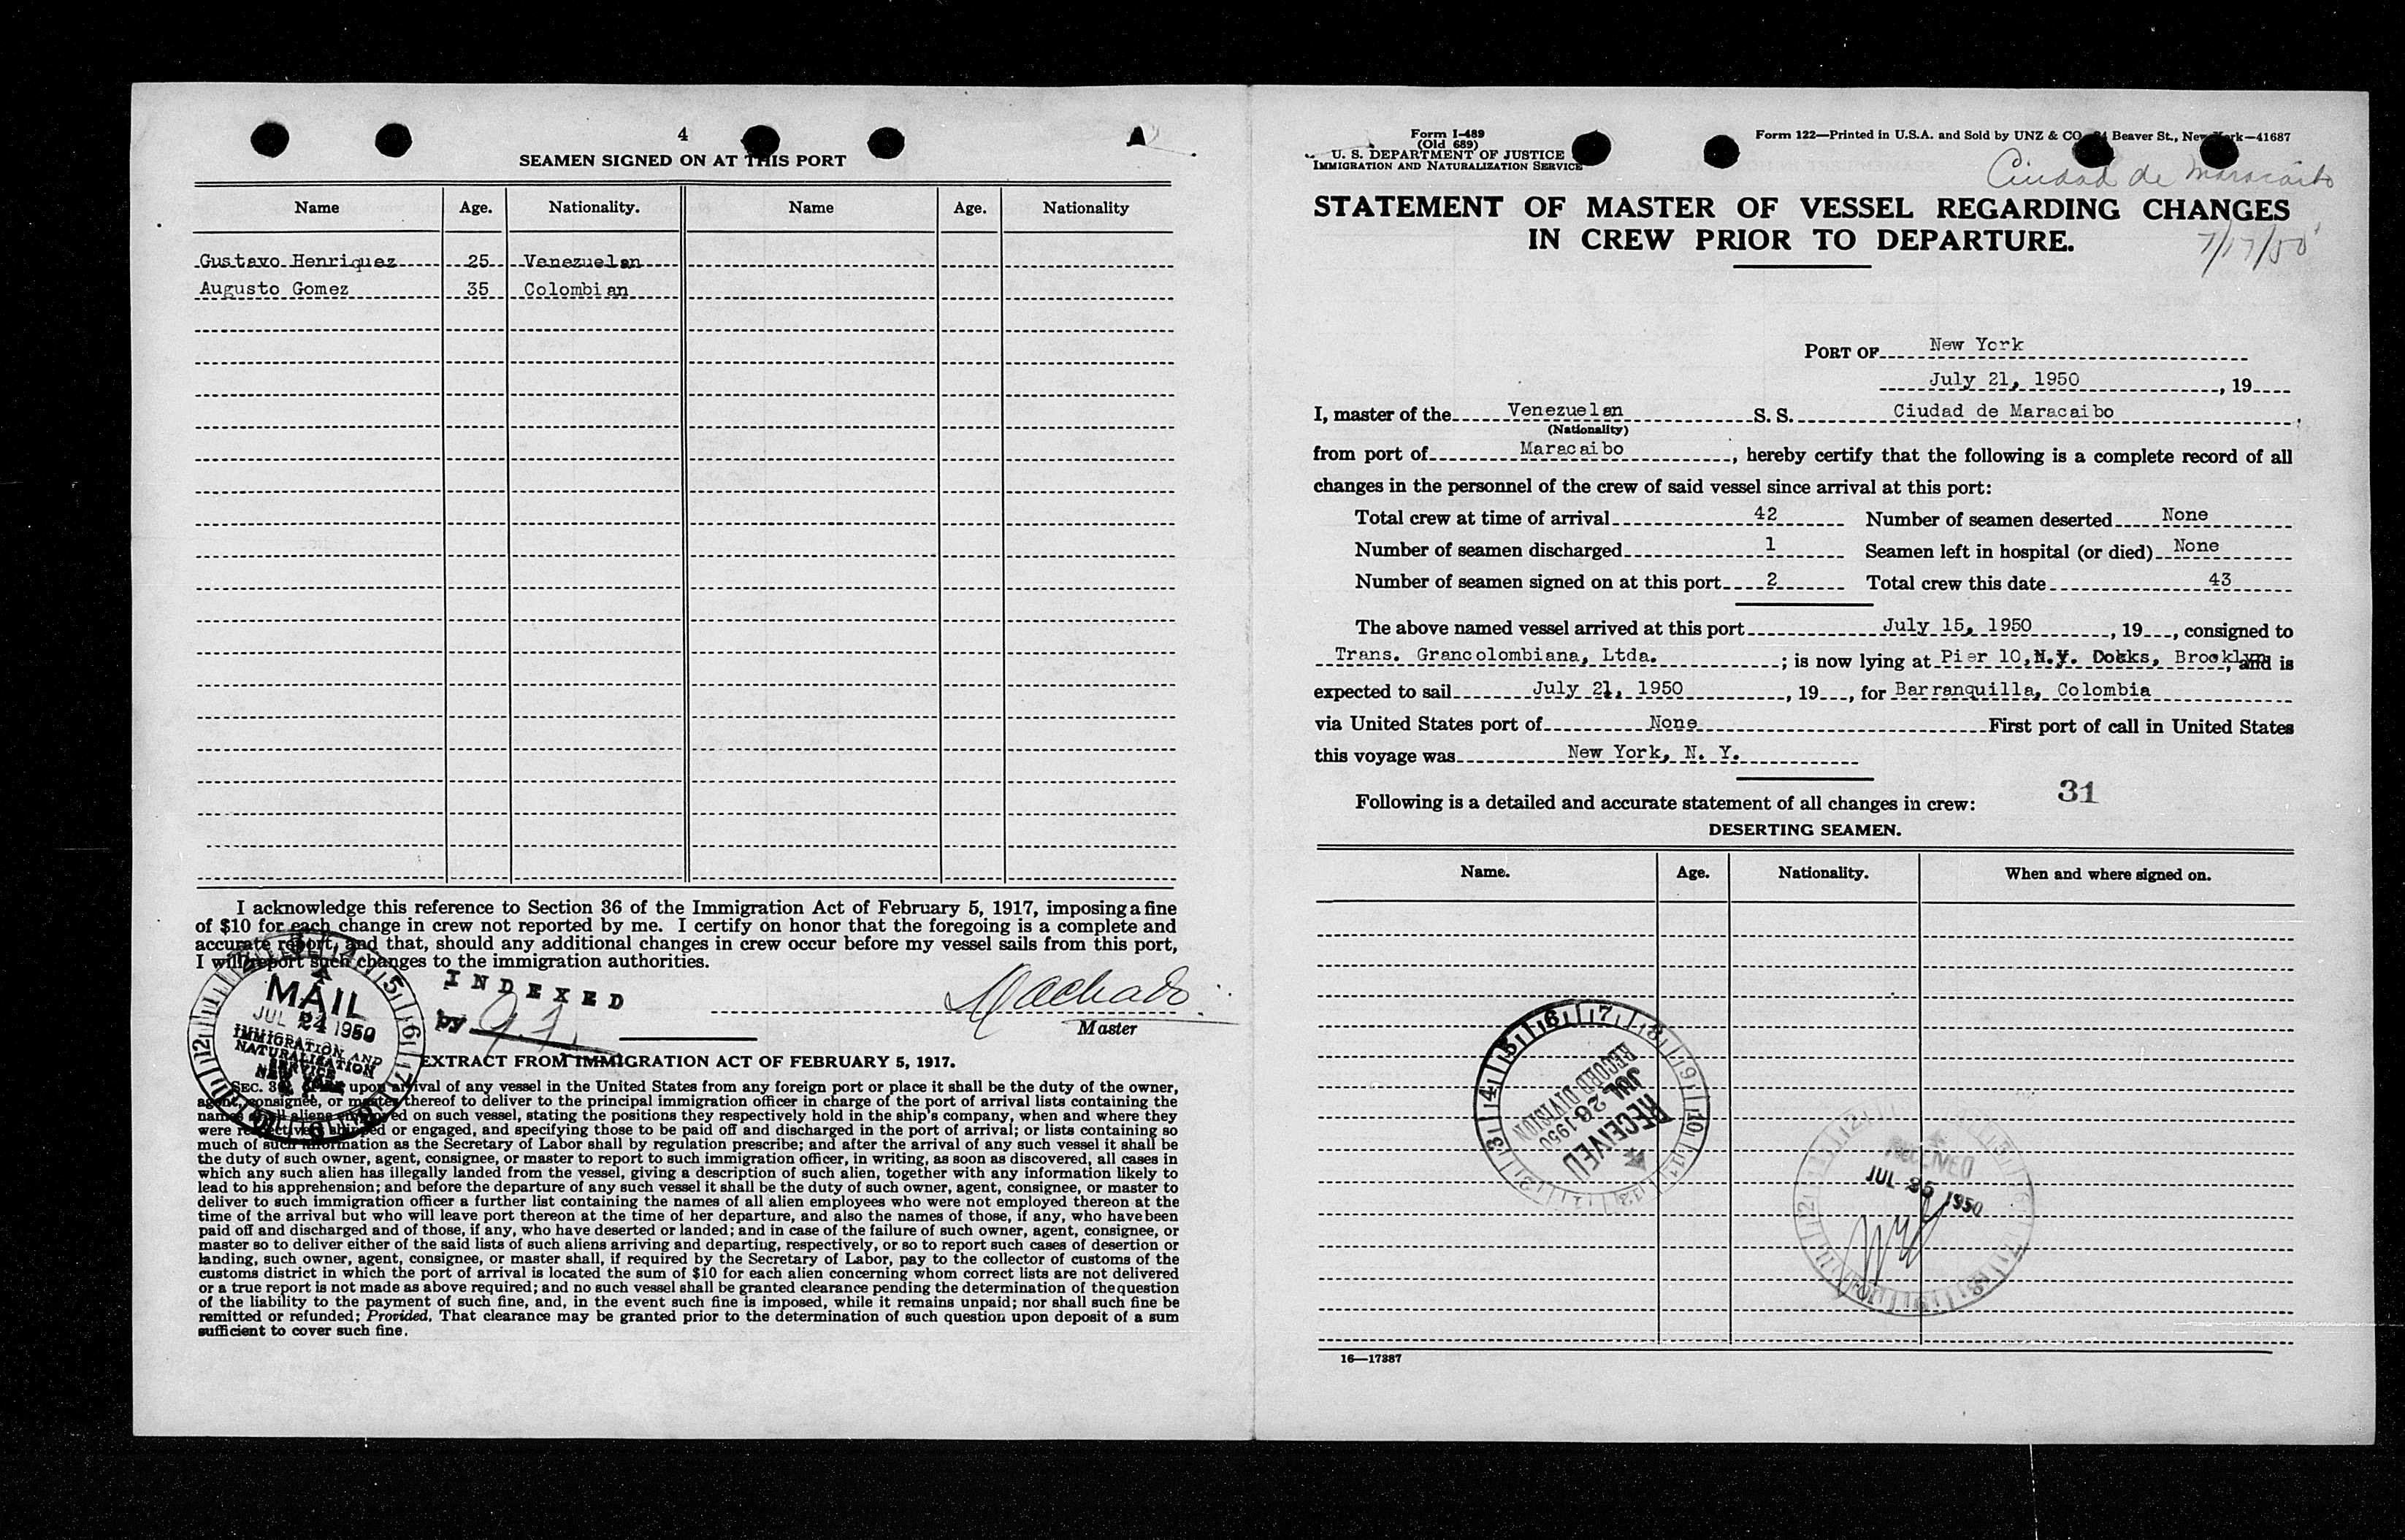 4
SEAMEN SIGNED ON AT THIS PORT
Name Age. Nationality. Name Age. Nationality
Gustavo Henriquez 25 Venezuelan
Augusto Gomez 35 Colombian
I acknowledge this reference to Section 36 of the Immigration Act of February 5, 1917, imposing a fine
of $10 for each change in crew not reported by me. I certify on honor that the foregoing is a complete and
accurate report, and that, should any additional changes in crew occur before my vessel sails from this port,
I will report such changes to the immigration authorities.
INDEXED
by
Machado
Master
MAIL
JUL 24 1950
IMMIGRATION AND
NATURALISATION
SERVICE
NEW YORK
EXTRACT FROM IMMIGRATION ACT OF FEBRUARY 5, 1917.
SEC. 36. upon arrival of any vessel in the United States from any foreign port or place it shall be the duty of the owner,
agent, consignee, or master thereof to deliver to the principal immigration officer in charge of the port of arrival lists containing the
names of all aliens employed on such vessel, stating the positions they respectively hold in the ship's company, when and where they
were respectively shipped or engaged, and specifying those to be paid off and discharged in the port of arrival; or lists containing so
much of such information as the Secretary of Labor shall by regulation prescribe; and after the arrival of any such vessel it shall be
the duty of such owner, agent, consignee, or master to report to such immigration officer, in writing, as soon as discovered, all cases in
which any such alien has illegally landed from the vessel, giving a description of such alien, together with any information likely to
lead to his apprehension; and before the departure of any such vessel it shall be the duty of such owner, agent, consignee, or master to
deliver to such immigration officer a further list containing the names of all alien employees who were not employed thereon at the
time of the arrival but who will leave port thereon at the time of her departure, and also the names of those, if any, who have been
paid off and discharged and of those, if any, who have deserted or landed; and in case of the failure of such owner, agent, consignee, or
master so to deliver either of the said lists of such aliens arriving and departing, respectively, or so to report such cases of desertion or
landing, such owner, agent, consignee, or master shall, if required by the Secretary of Labor, pay to the collector of customs of the
customs district in which the port of arrival is located the sum of $10 for each alien concerning whom correct lists are not delivered
or a true report is not made as above required; and no such vessel shall be granted clearance pending the determination of the question
of the liability to the payment of such fine, and, in the event such fine is imposed, while it remains unpaid; nor shall such fine be
remitted or refunded; Provided, That clearance may be granted prior to the determination of such question upon deposit of a sum
sufficient to cover such fine.
Form I-489
(Old 689)
U. S. DEPARTMENT OF JUSTICE
IMMIGRATION AND NATURALIZATION SERVICE
Form 122—Printed in U.S.A. and Sold by UNZ & CO. 24 Beaver St., New York—41687
Ciudad de Maracaibo
STATEMENT OF MASTER OF VESSEL REGARDING CHANGES
IN CREW PRIOR TO DEPARTURE.
7/17/50
PORT OF New York
July 21, 1950, 19
I, master of the Venezuelan S. S. Ciudad de Maracaibo,
(Nationality)
from port of Maracaibo, hereby certify that the following is a complete record of all
changes in the personnel of the crew of said vessel since arrival at this port:
Total crew at time of arrival 42 Number of seamen deserted None
Number of seamen discharged 1 Seamen left in hospital (or died) None
Number of seamen signed on at this port 2 Total crew this date 43
The above named vessel arrived at this port July 15, 1950, 19, consigned to
Trans. Grancolombiana, Ltda.; is now lying at Pier 10, N.Y. Docks, Brooklyn, and is
expected to sail July 21, 1950, 19, for Barranquilla, Colombia
via United States port of None First port of call in United States
this voyage was New York, N. Y.
Following is a detailed and accurate statement of all changes in crew: 31
DESERTING SEAMEN.
Name. Age. Nationality. When and where signed on.
RECEIVED
JUL 26 1950
RECORD DIVISION
RECEIVED
JUL 25 1950
16—17387